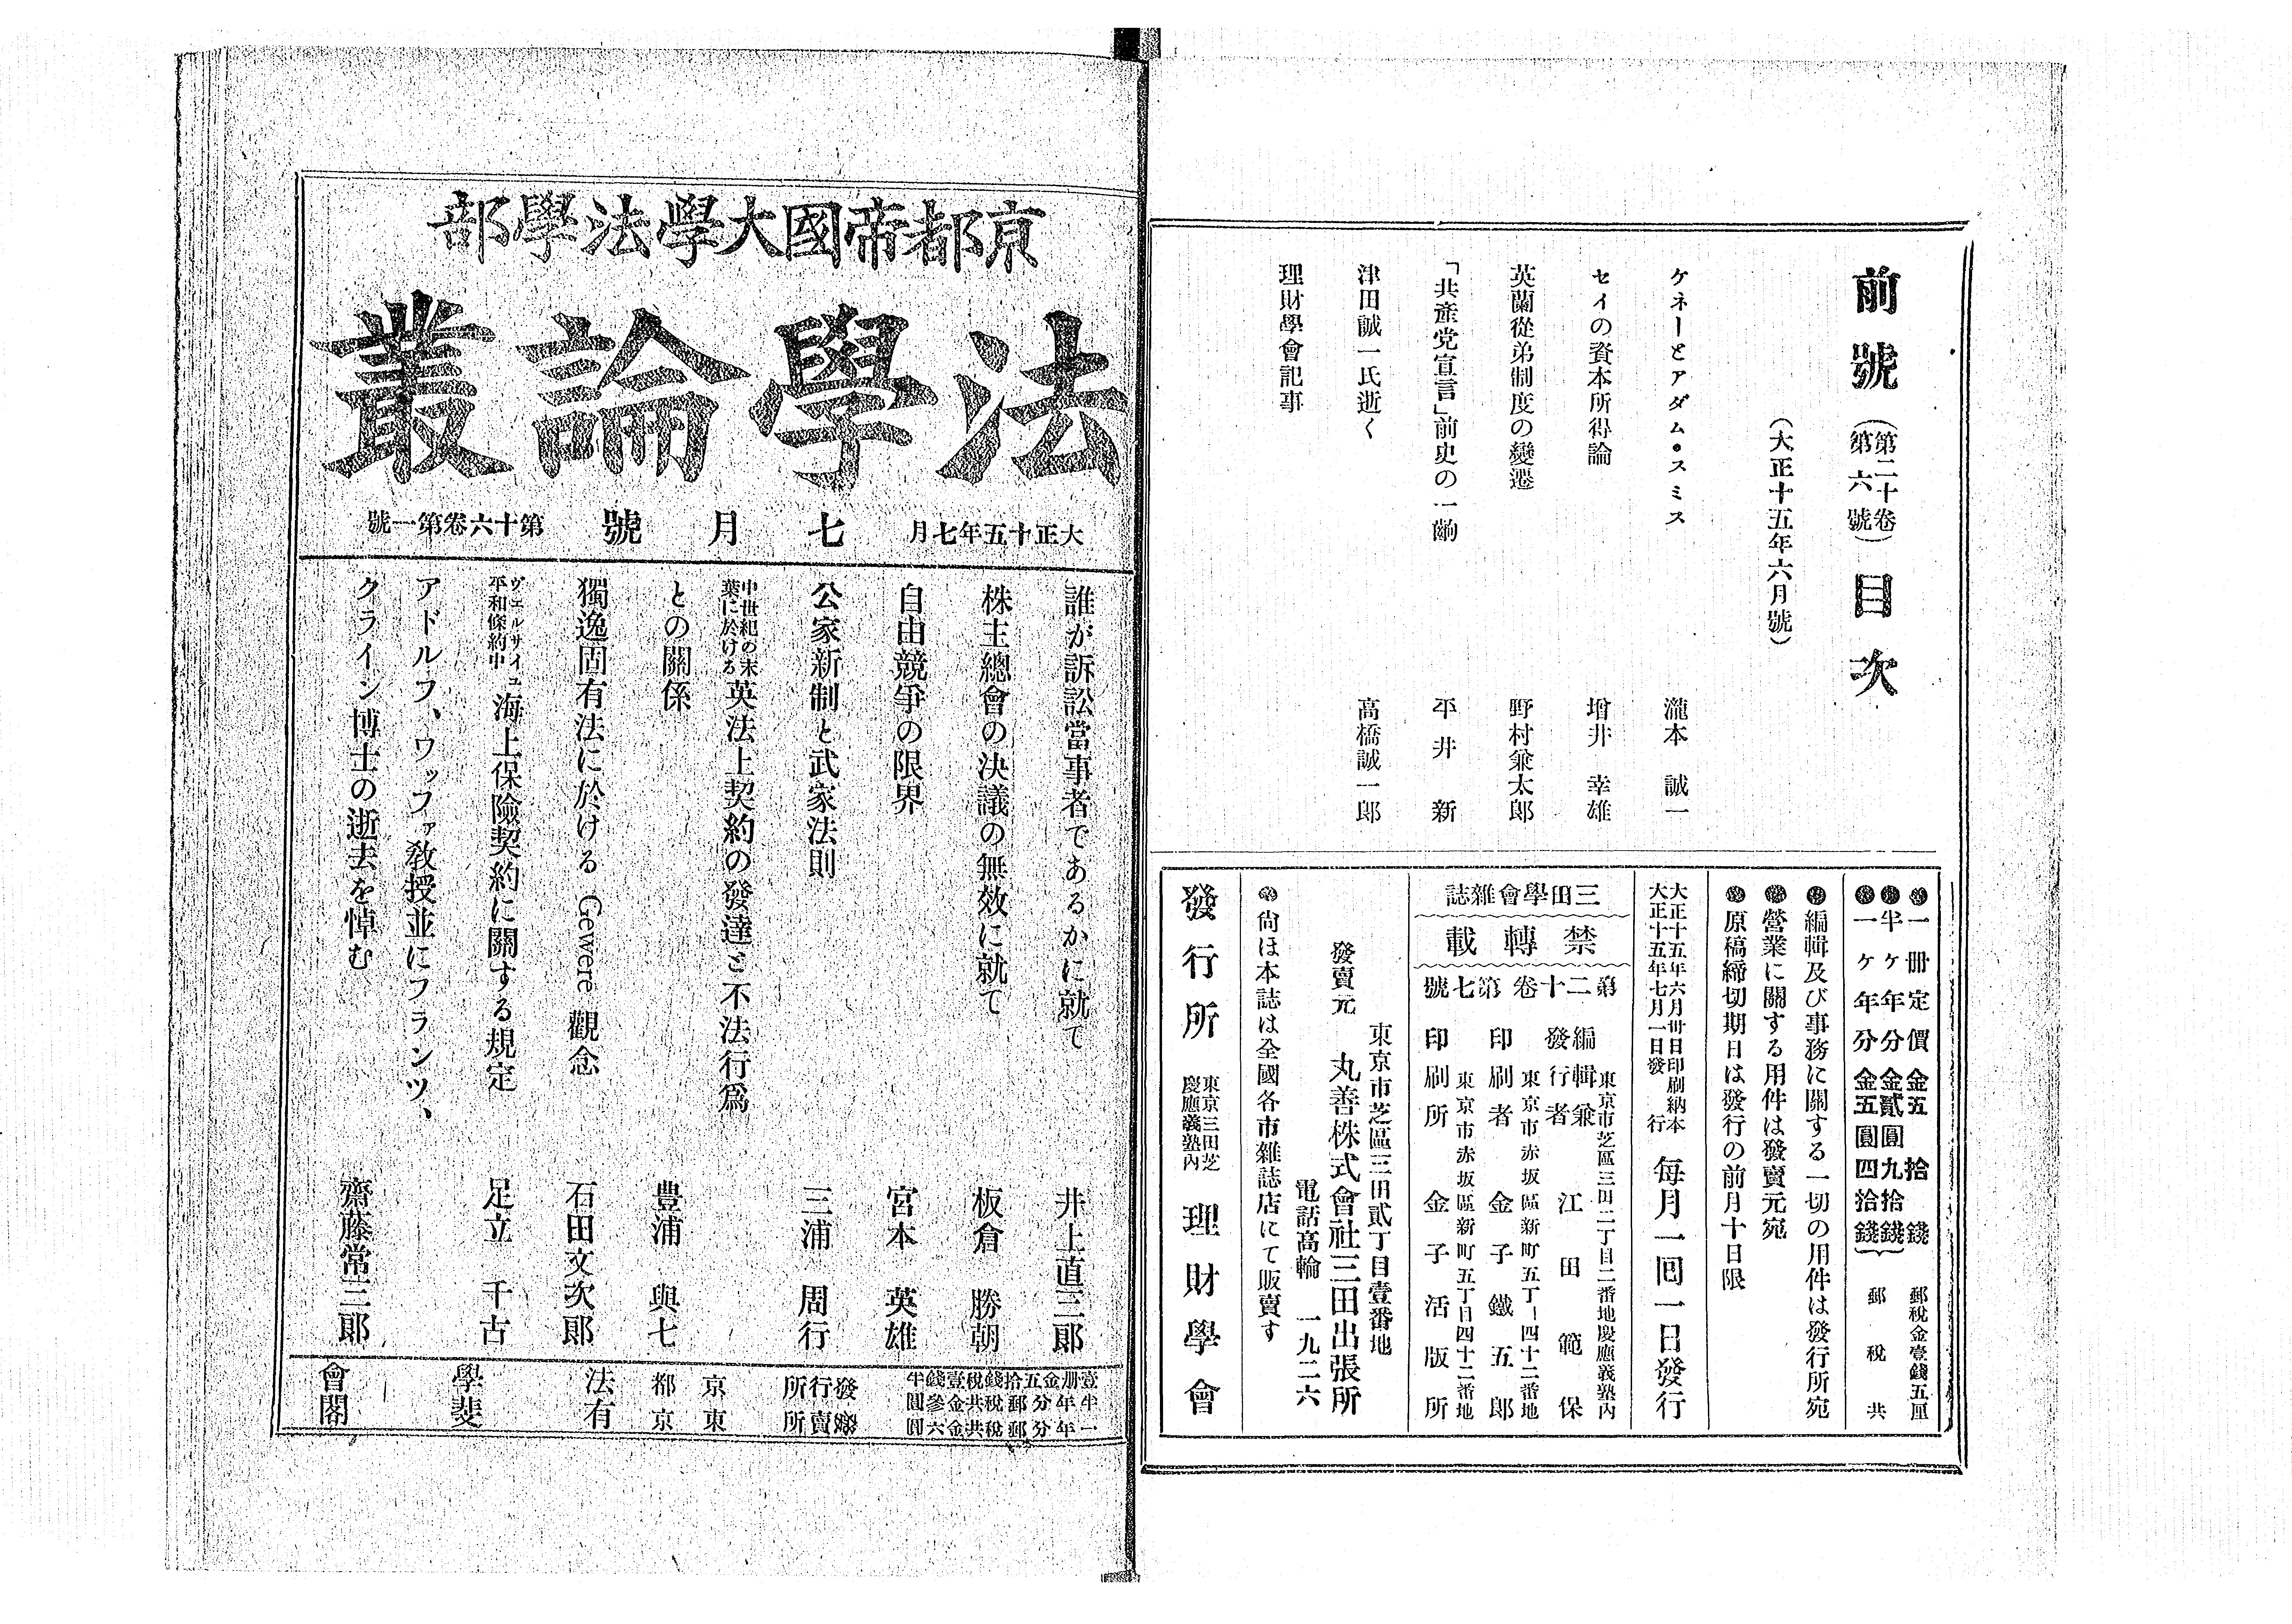 前號(第二十卷第六號)目次
(大正十五年六月號)
ケネーとアダム・スミス 瀧本誠一
セイの資本所得論 增井幸雄
英蘭從弟制度の變遷 野村兼太郎
「共產党宣言」前史の一齣 平井新
津田誠一氏逝く 高橋誠一郎
理財學會記事
●一冊定價金五拾錢 郵稅金壹錢五厘
●半ケ年分金貳圓九拾錢
●一ケ年分金五圓四拾錢 郵稅共
●編輯及び事務に關する一切の用件は發行所宛
●營業に關する用件は發賣元宛
●原稿締切期日は發行の前月十日限
大正十五年六月卅日印刷納本
大正十五年七月一日發行
每月一回一日發行
三田學會雜誌
禁轉載
第二十卷第七號
東京市芝區三田二丁目二番地慶應義塾內
編輯兼發行者 江田範保
東京市赤坂區新町五丁目四十二番地
印刷者 金子鐵五郎
東京市赤坂區新町五丁目四十二番地
印刷所 金子活版所
東京市芝區三田貳丁目壹番地
發賣元 丸善株式會社三田出張所
電話高輪一九二六
●尙ほ本誌は全國各市雜誌店にて販賣す
發行所 東京三田芝慶應義塾內 理財學會
京都帝國大學法學部
法學論叢
大正十五年七月
七月號
第十六卷第一號
誰が訴訟當事者であるかに就て 井上直三郎
株主總會の決議の無效に就て 板倉勝朝
自由競爭の限界 宮本英雄
公家新制と武家法則 三浦周行
中世紀の末葉に於ける英法上契約の發達と不法行爲
との關係 豊浦與七
獨逸固有法に於ける Gewere 觀念 石田文次郎
ヴェルサイユ平和條約中海上保險契約に關する規定 足立千古
アドルフ、ワッファ教授並にフランツ、
クライン博士の逝去を悼む 齋藤常三郎
壹冊金五拾錢稅壹錢半
半年分郵稅共金參圓
一年分郵稅共金六圓
發行所 京都 法學會
發賣所 東京 有斐閣